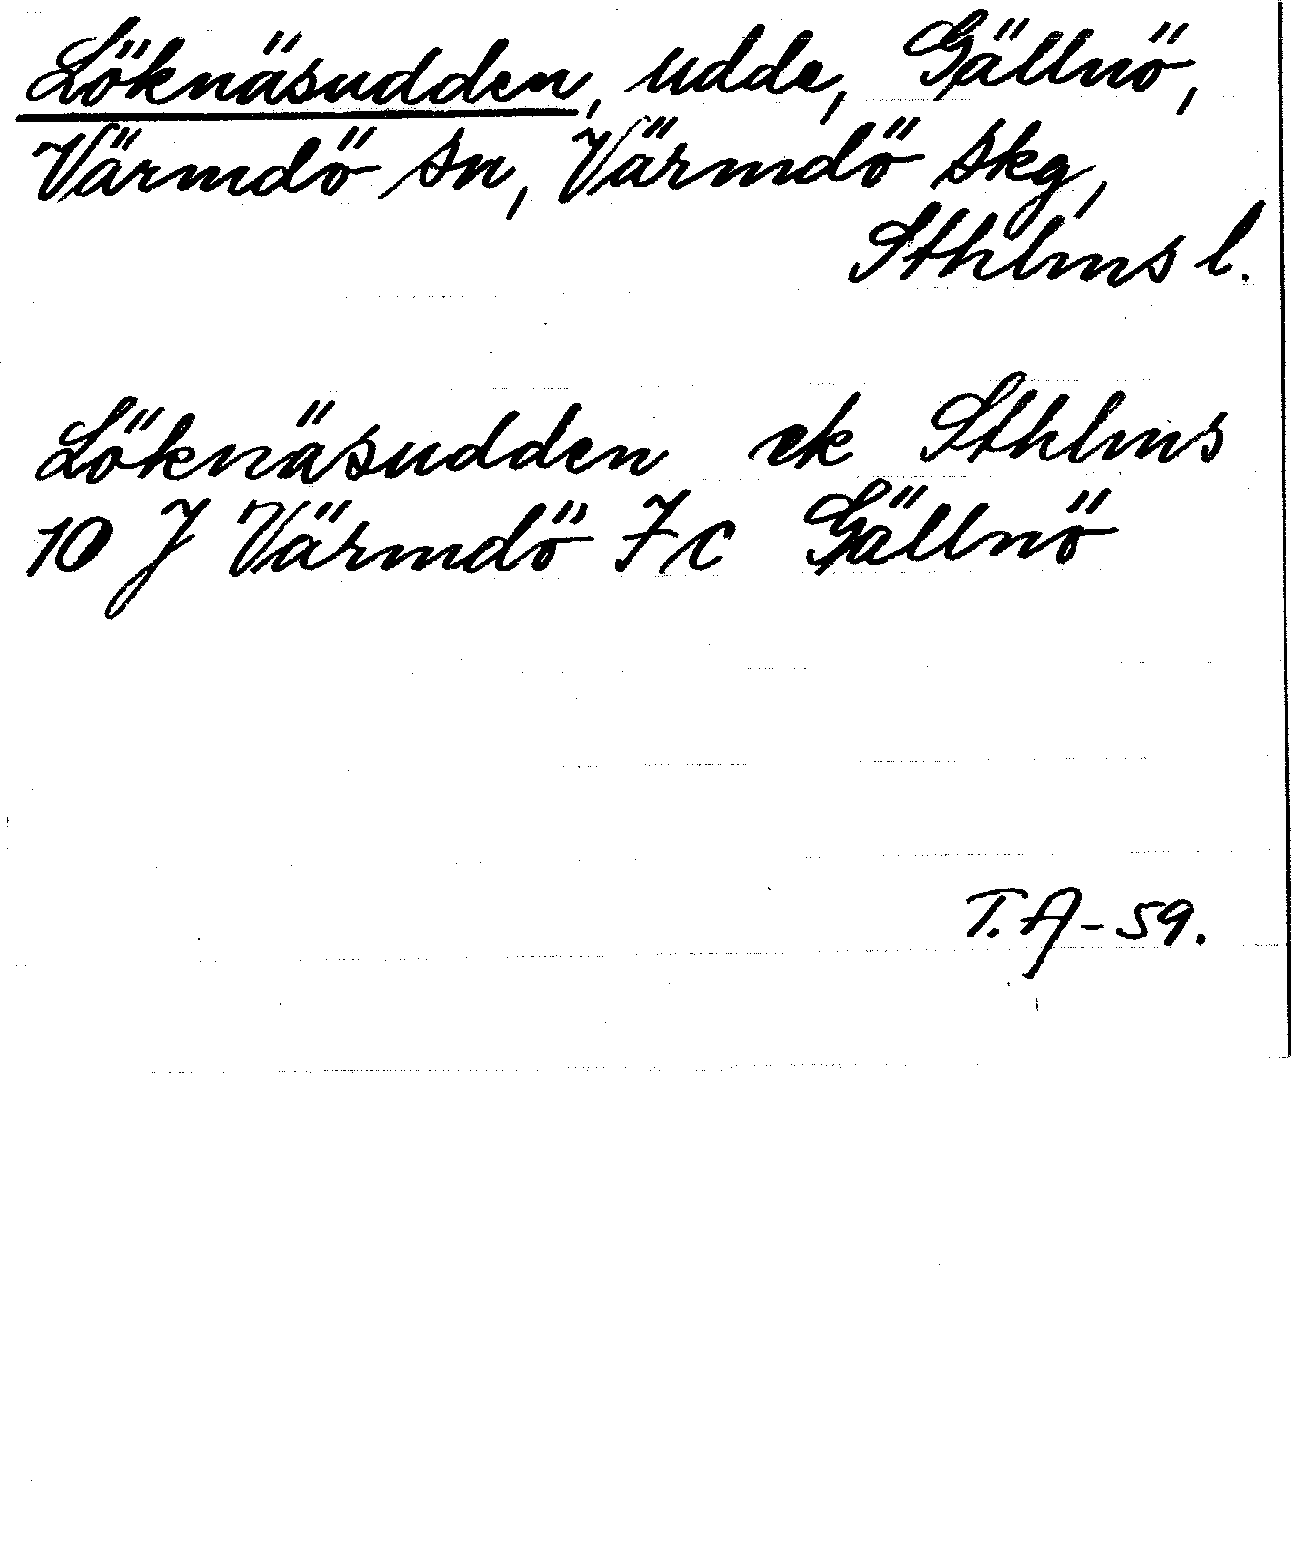 Löknäsudden, udde, Gällnö,
Värmdö sn, Värmdö skg,
Sthlms l.
Löknäsudden ek Sthlms
10 J Värmdö 7c Gällnö
T. A - 59.